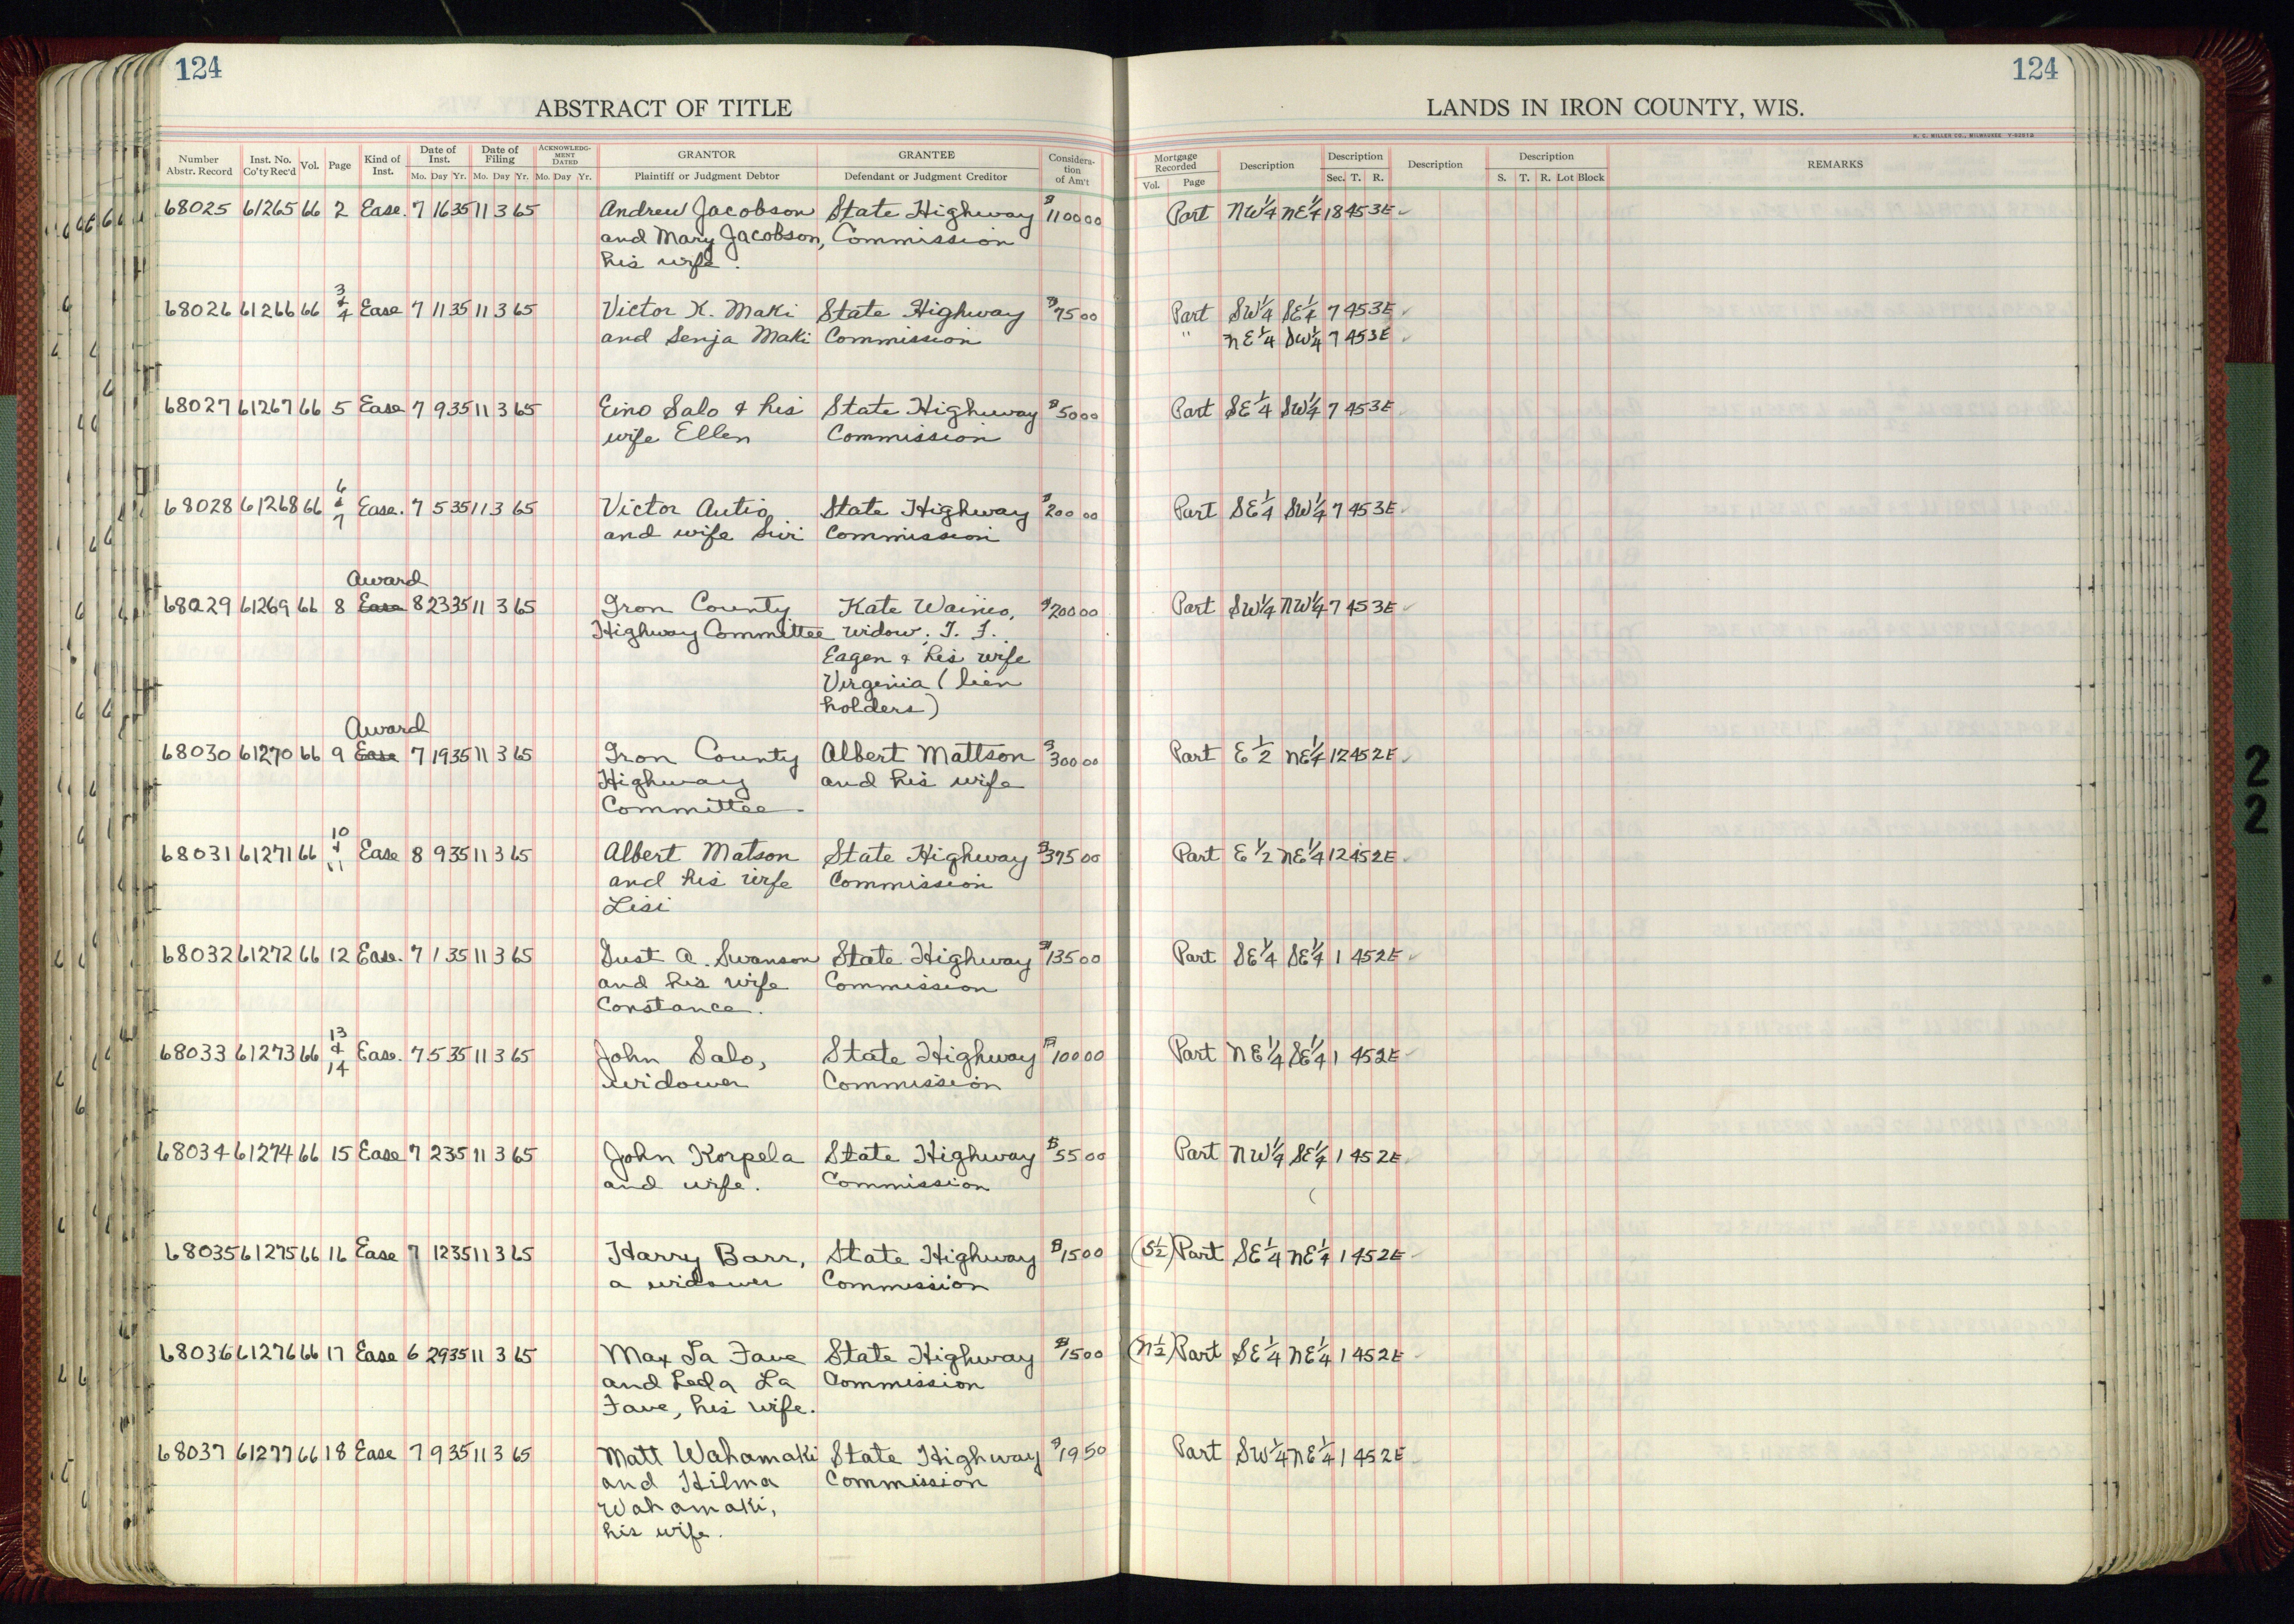 124
124
ABSTRACT OF TITLE
LANDS IN IRON COUNTY, WIS.
H. C. MILLER CO., MILWAUKEE
Number Abstr. Record Inst. No. Co'ty Rec'd Vol. Page Kind of Inst. Date of Inst. Mo. Day Yr. Date of Filing Mo. Day Yr. ACKNOWLEDGMENT DATED Mo. Day Yr. GRANTOR Plaintiff or Judgment Debtor GRANTEE Defendant or Judgment Creditor Consideration of Am't Mortgage Recorded Vol. Page Description Description Sec. T. R. Description Description S. T. R. Lot Block REMARKS
68025 61265 66 2 Ease. 7 16 35 11 3 65 Andrew Jacobson State Highway $1100 00 Part NW 1/4 NE 1/4 18 45 3E ✓
and Mary Jacobson, Commission
his wife.
3
68026 61266 66 & Ease 7 11 35 11 3 65 Victor K. Maki State Highway $75 00 Part SW 1/4 SE 1/4 7 45 3E ✓
4
and Senja Maki Commission " NE 1/4 SW 1/4 7 45 3E ✓
68027 61267 66 5 Ease 7 9 35 11 3 65 Eino Salo & his State Highway $50 00 Part SE 1/4 SW 1/4 7 45 3E
wife Ellen Commission
6
68028 61268 66 & Ease. 7 5 35 11 3 65 Victor Autio State Highway $200 00 Part SE 1/4 SW 1/4 7 45 3E ✓
7
and wife Sivi Commission
Award
68029 61269 66 8 Ease 8 23 35 11 3 65 Iron County Kate Wainio, $200 00 Part SW 1/4 NW 1/4 7 45 3E ✓
Highway Committee widow. T. F.
Eagen & his wife
Virginia (lien
holders)
Award
68030 61270 66 9 Ease 7 19 35 11 3 65 Iron County Albert Mattson $300 00 Part E 1/2 NE 1/4 12 45 2E ✓
Highway and his wife
Committee
10
68031 61271 66 & Ease 8 9 35 11 3 65 Albert Matson State Highway $375 00 Part E 1/2 NE 1/4 12 45 2E
11
and his wife Commission
Lisi
68032 61272 66 12 Ease. 7 1 35 11 3 65 Gust A. Swanson State Highway $135 00 Part SE 1/4 SE 1/4 1 45 2E ✓
and his wife Commission
Constance.
13
68033 61273 66 & Ease. 7 5 35 11 3 65 John Salo, State Highway $100 00 Part NE 1/4 SE 1/4 1 45 2E ✓
14
widower Commission
68034 61274 66 15 Ease 7 2 35 11 3 65 John Korpela State Highway $55 00 Part NW 1/4 SE 1/4 1 45 2E
and wife. Commission
68035 61275 66 16 Ease 7 12 35 11 3 65 Harry Barr, State Highway $15 00 (S 1/2) Part SE 1/4 NE 1/4 1 45 2E
a widower Commission
68036 61276 66 17 Ease 6 29 35 11 3 65 Max La Fave State Highway $15 00 (N 1/2) Part SE 1/4 NE 1/4 1 45 2E
and Leda La Commission
Fave, his wife.
68037 61277 66 18 Ease 7 9 35 11 3 65 Matt Wahamaki State Highway $19 50 Part SW 1/4 NE 1/4 1 45 2E
and Hilma Commission
Wahamaki,
his wife.
2
2